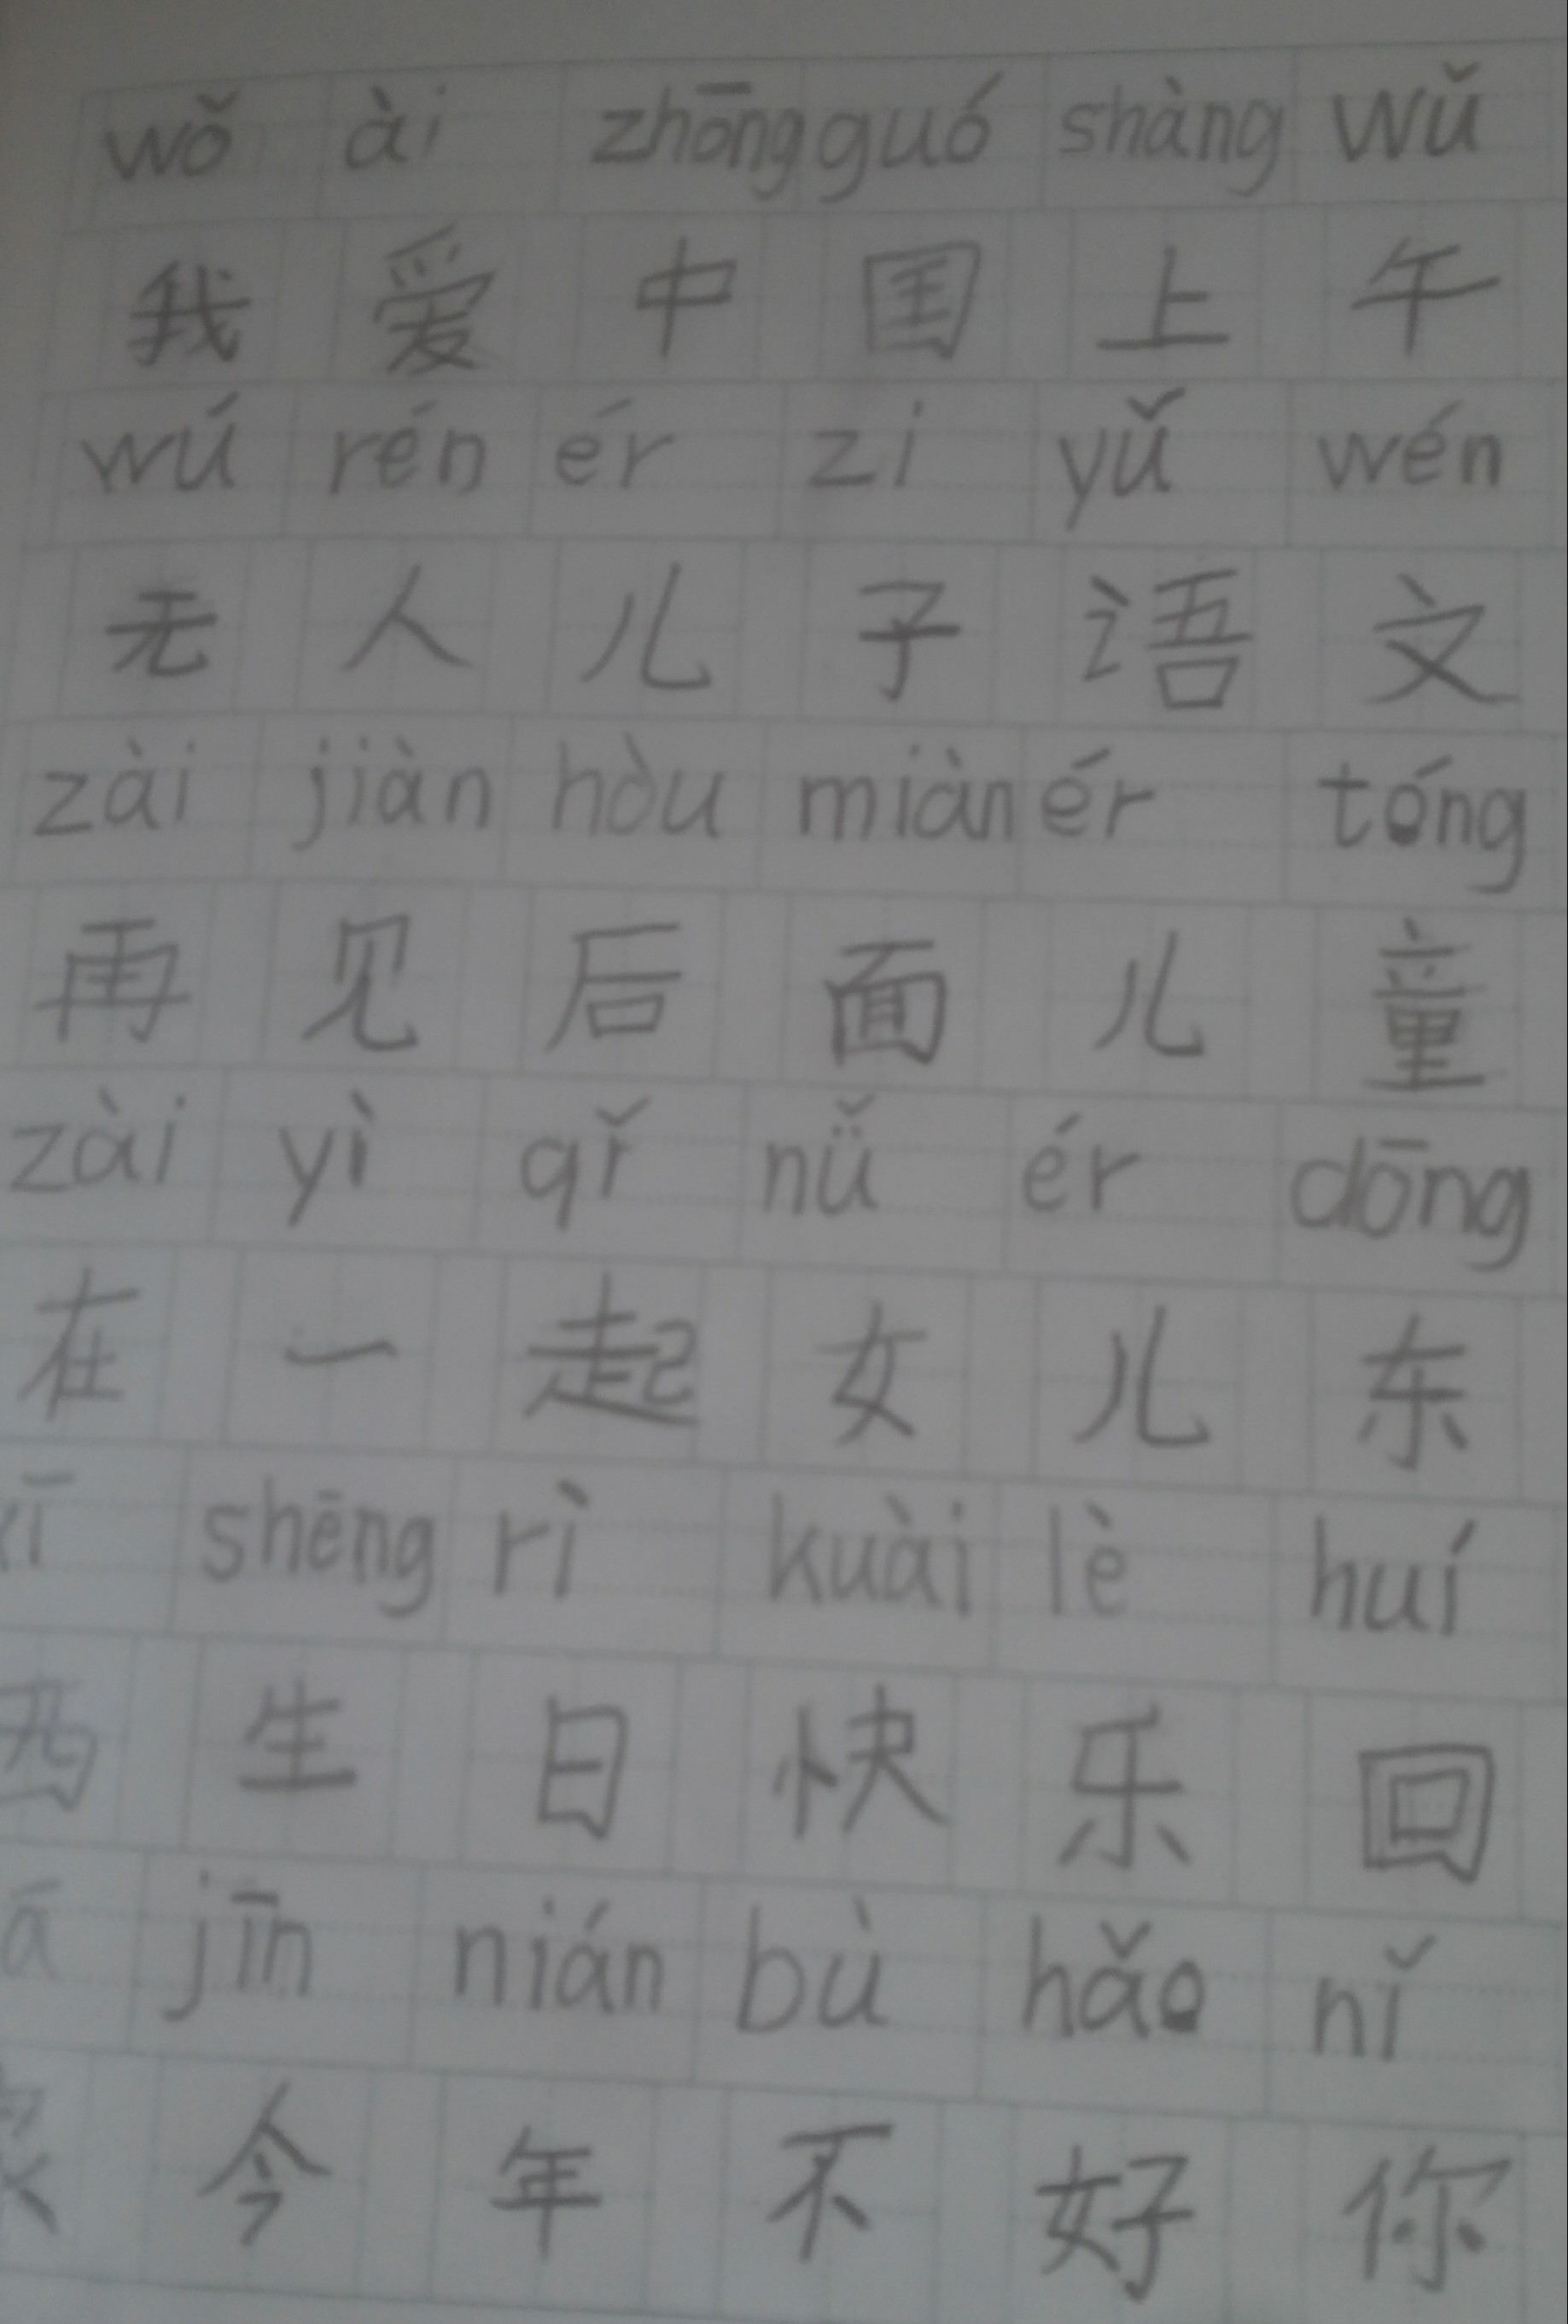 wǒ ài zhōng guó shàng wǔ
我 爱 中 国 上 午
wú rén ér zi yǔ wén
无 人 儿 子 语 文
zài jiàn hòu miàn ér tóng
再 见 后 面 儿 童
zài yì qǐ nǚ ér dōng
在 一 起 女 儿 东
xī shēng rì kuài lè huí
西 生 日 快 乐 回
jīn nián bù hǎo nǐ
今 年 不 好 你